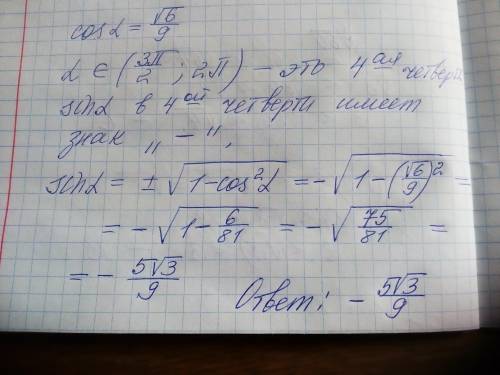 cosα = √6/9
α ∈ (3π/2 ; 2π) – это 4ая четверть
sinα в 4ой четверти имеет
знак „ – ",
sinα = ± √(1-cos²α) = -√(1-(√6/9)²) =
= -√(1-6/81) = -√(75/81) =
= - 5√3/9 Ответ: - 5√3/9